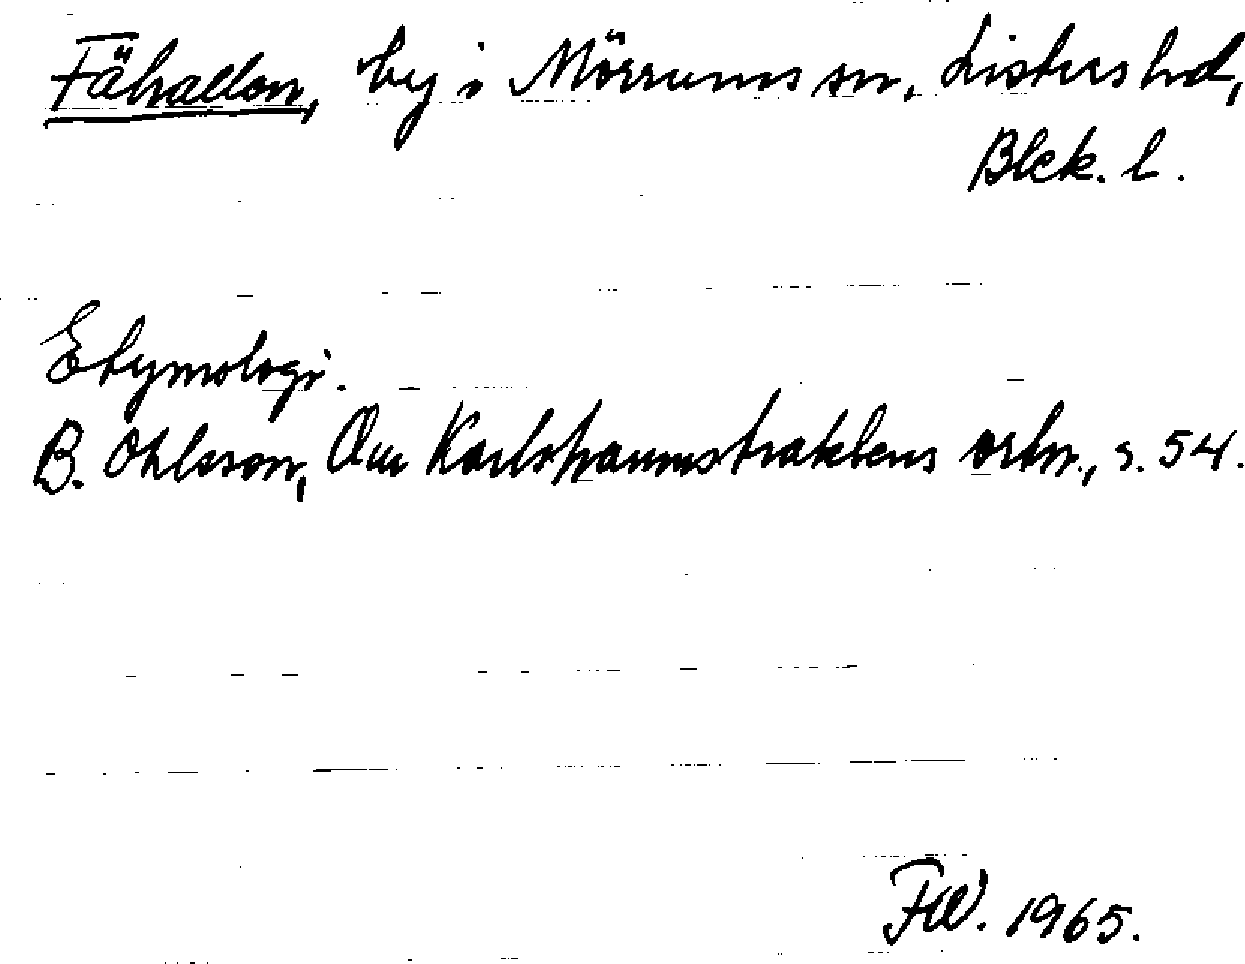 Fähallon, by i Mörrums sn, Listers hd,
Blek. l.
Etymologi.
B. Ohlsson, Om Karlshamnstraktens ortn., s. 54.
FW. 1965.